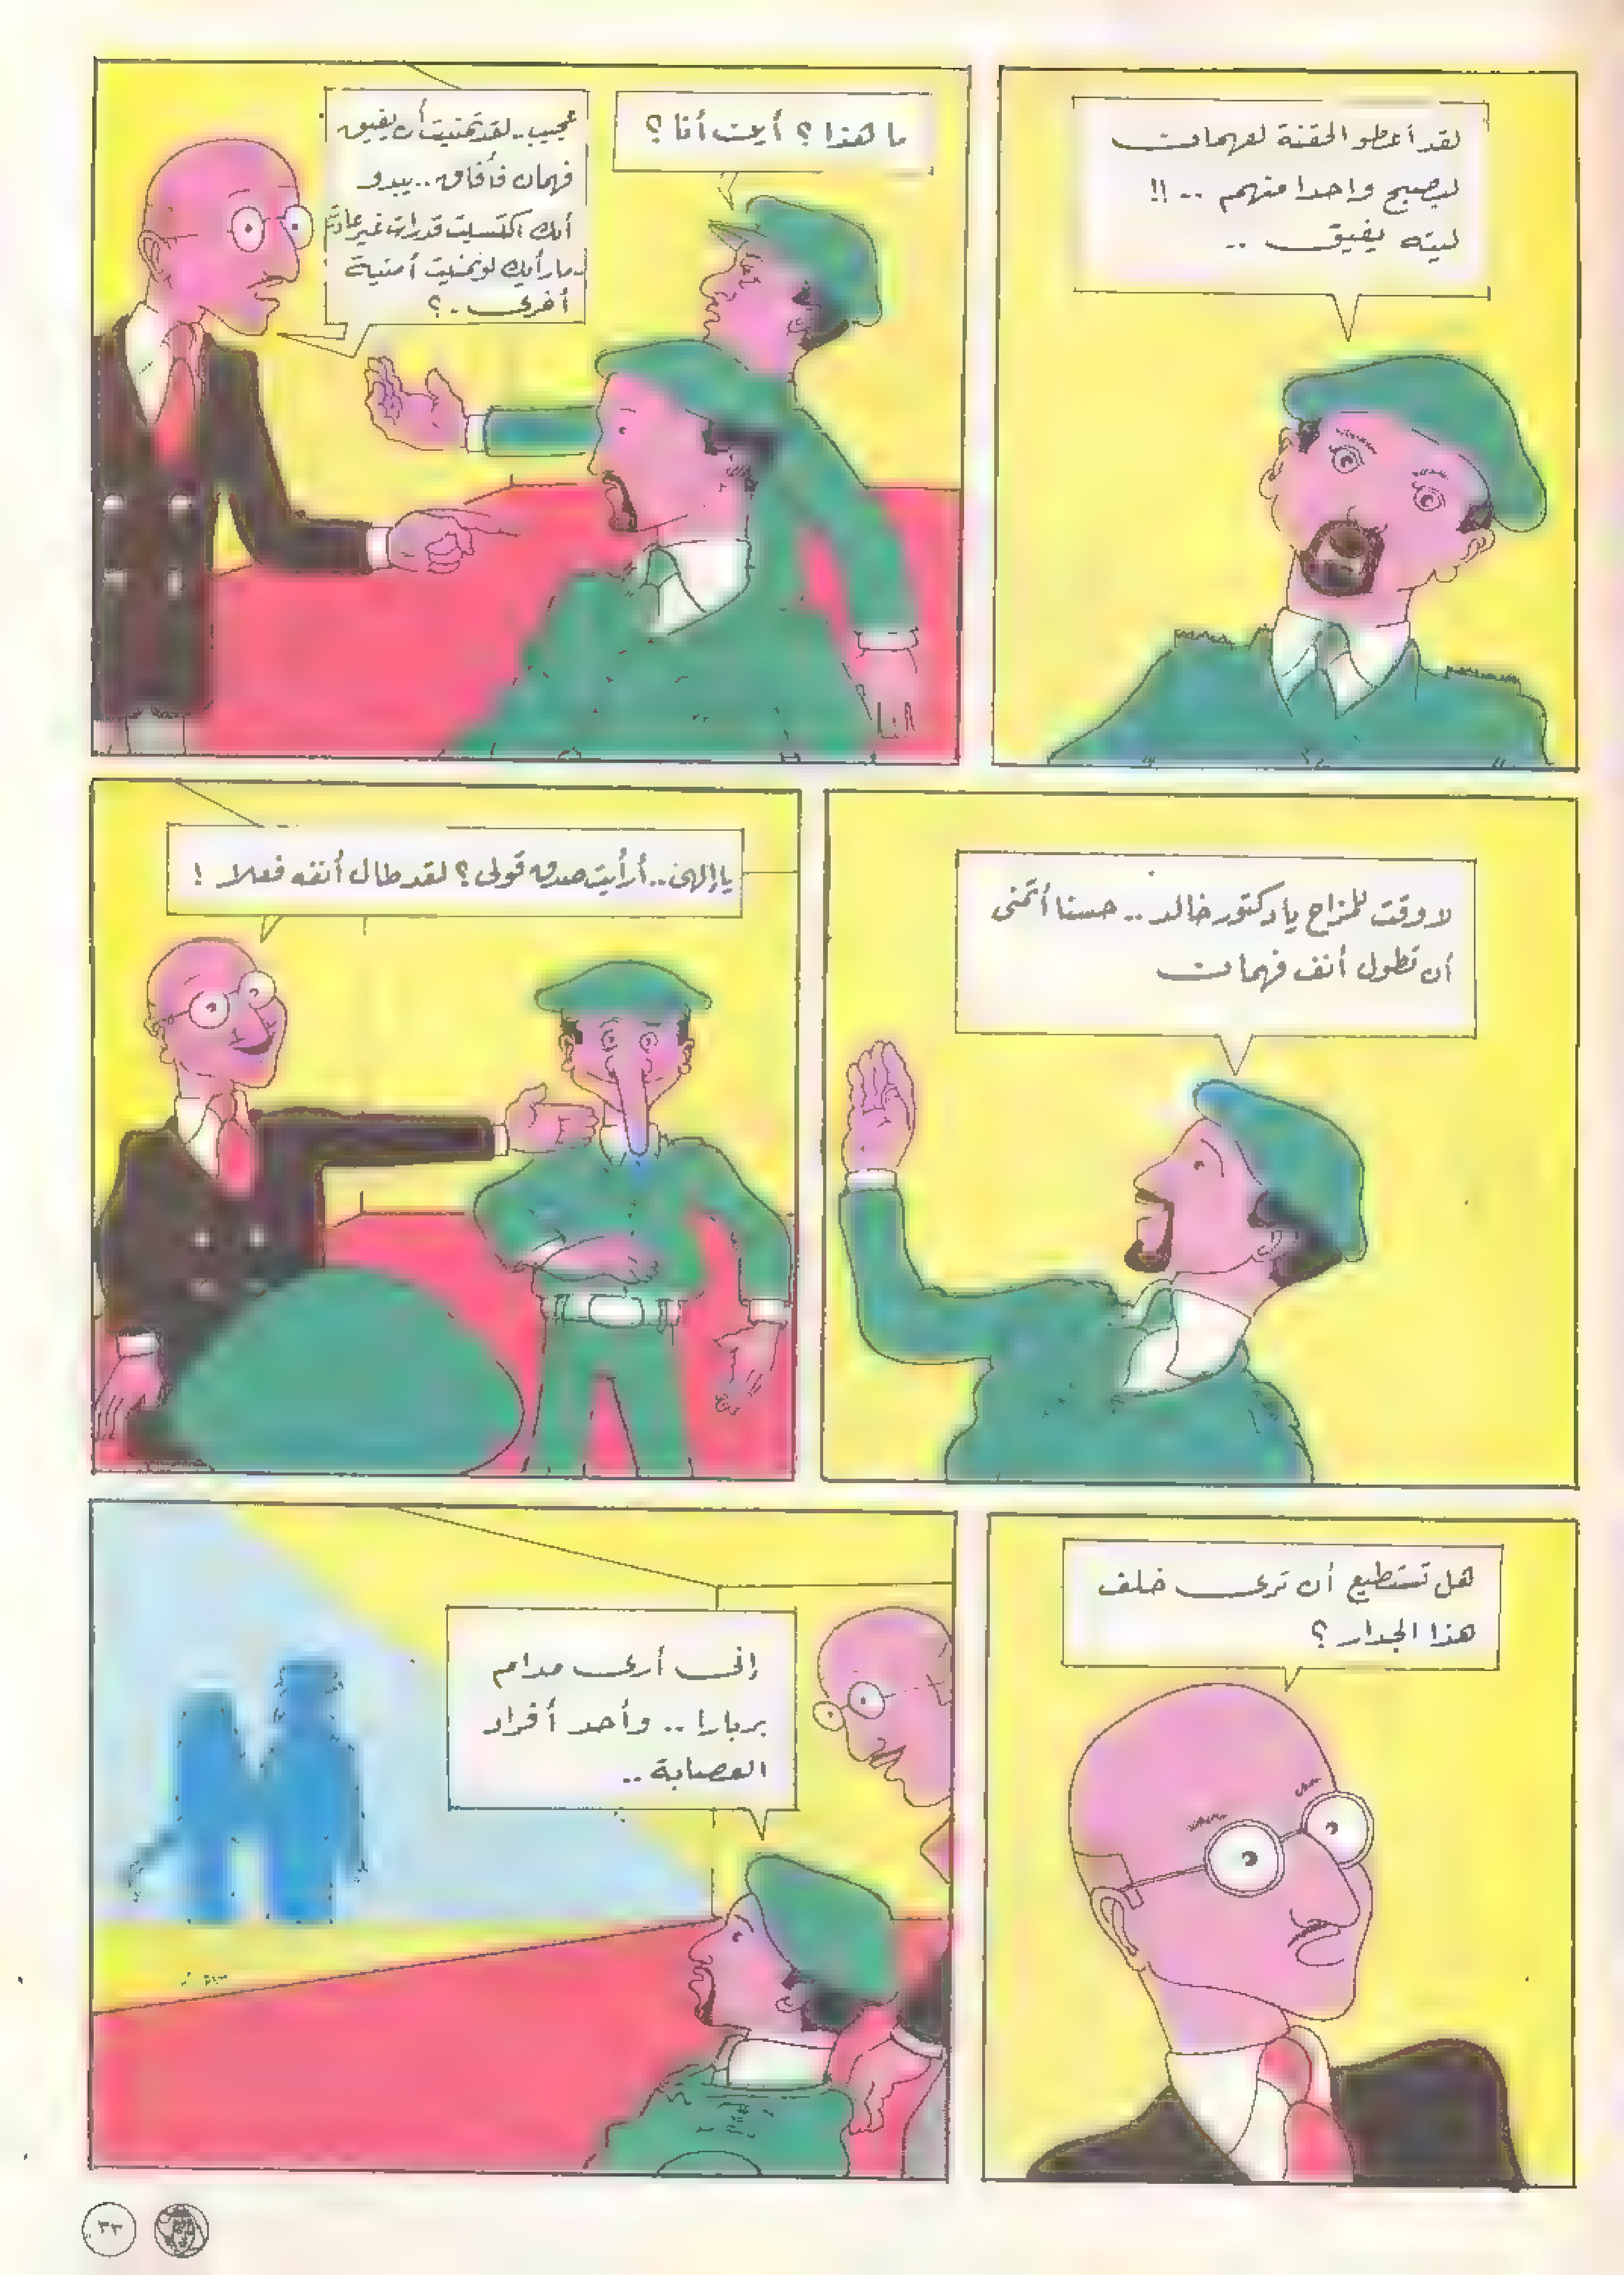 لقد أعطوا الحقنة لفهمان
ليصبح واحدا منهم .. !!
ليته يفيق ..
ما هذا ؟ أين أنا ؟
عجيب .. لقد تمنيت أن يفيق
فهمان فأفاق .. يبدو
أنك اكتسبت قدرات غير عادية
ما رأيك لو تمنيت أمنية
أخرى .. ؟
لا وقت للمزاح يا دكتور خالد .. حسنا أتمنى
أن تطول أنف فهمان
يا إلهى .. أرأيت صدق قولى ؟ لقد طال أنفه فعلا !
هل تستطيع أن ترى خلف
هذا الجدار ؟
إنى أرى مدام
بربارا .. وأحد أفراد
العصابة ..
٣٣